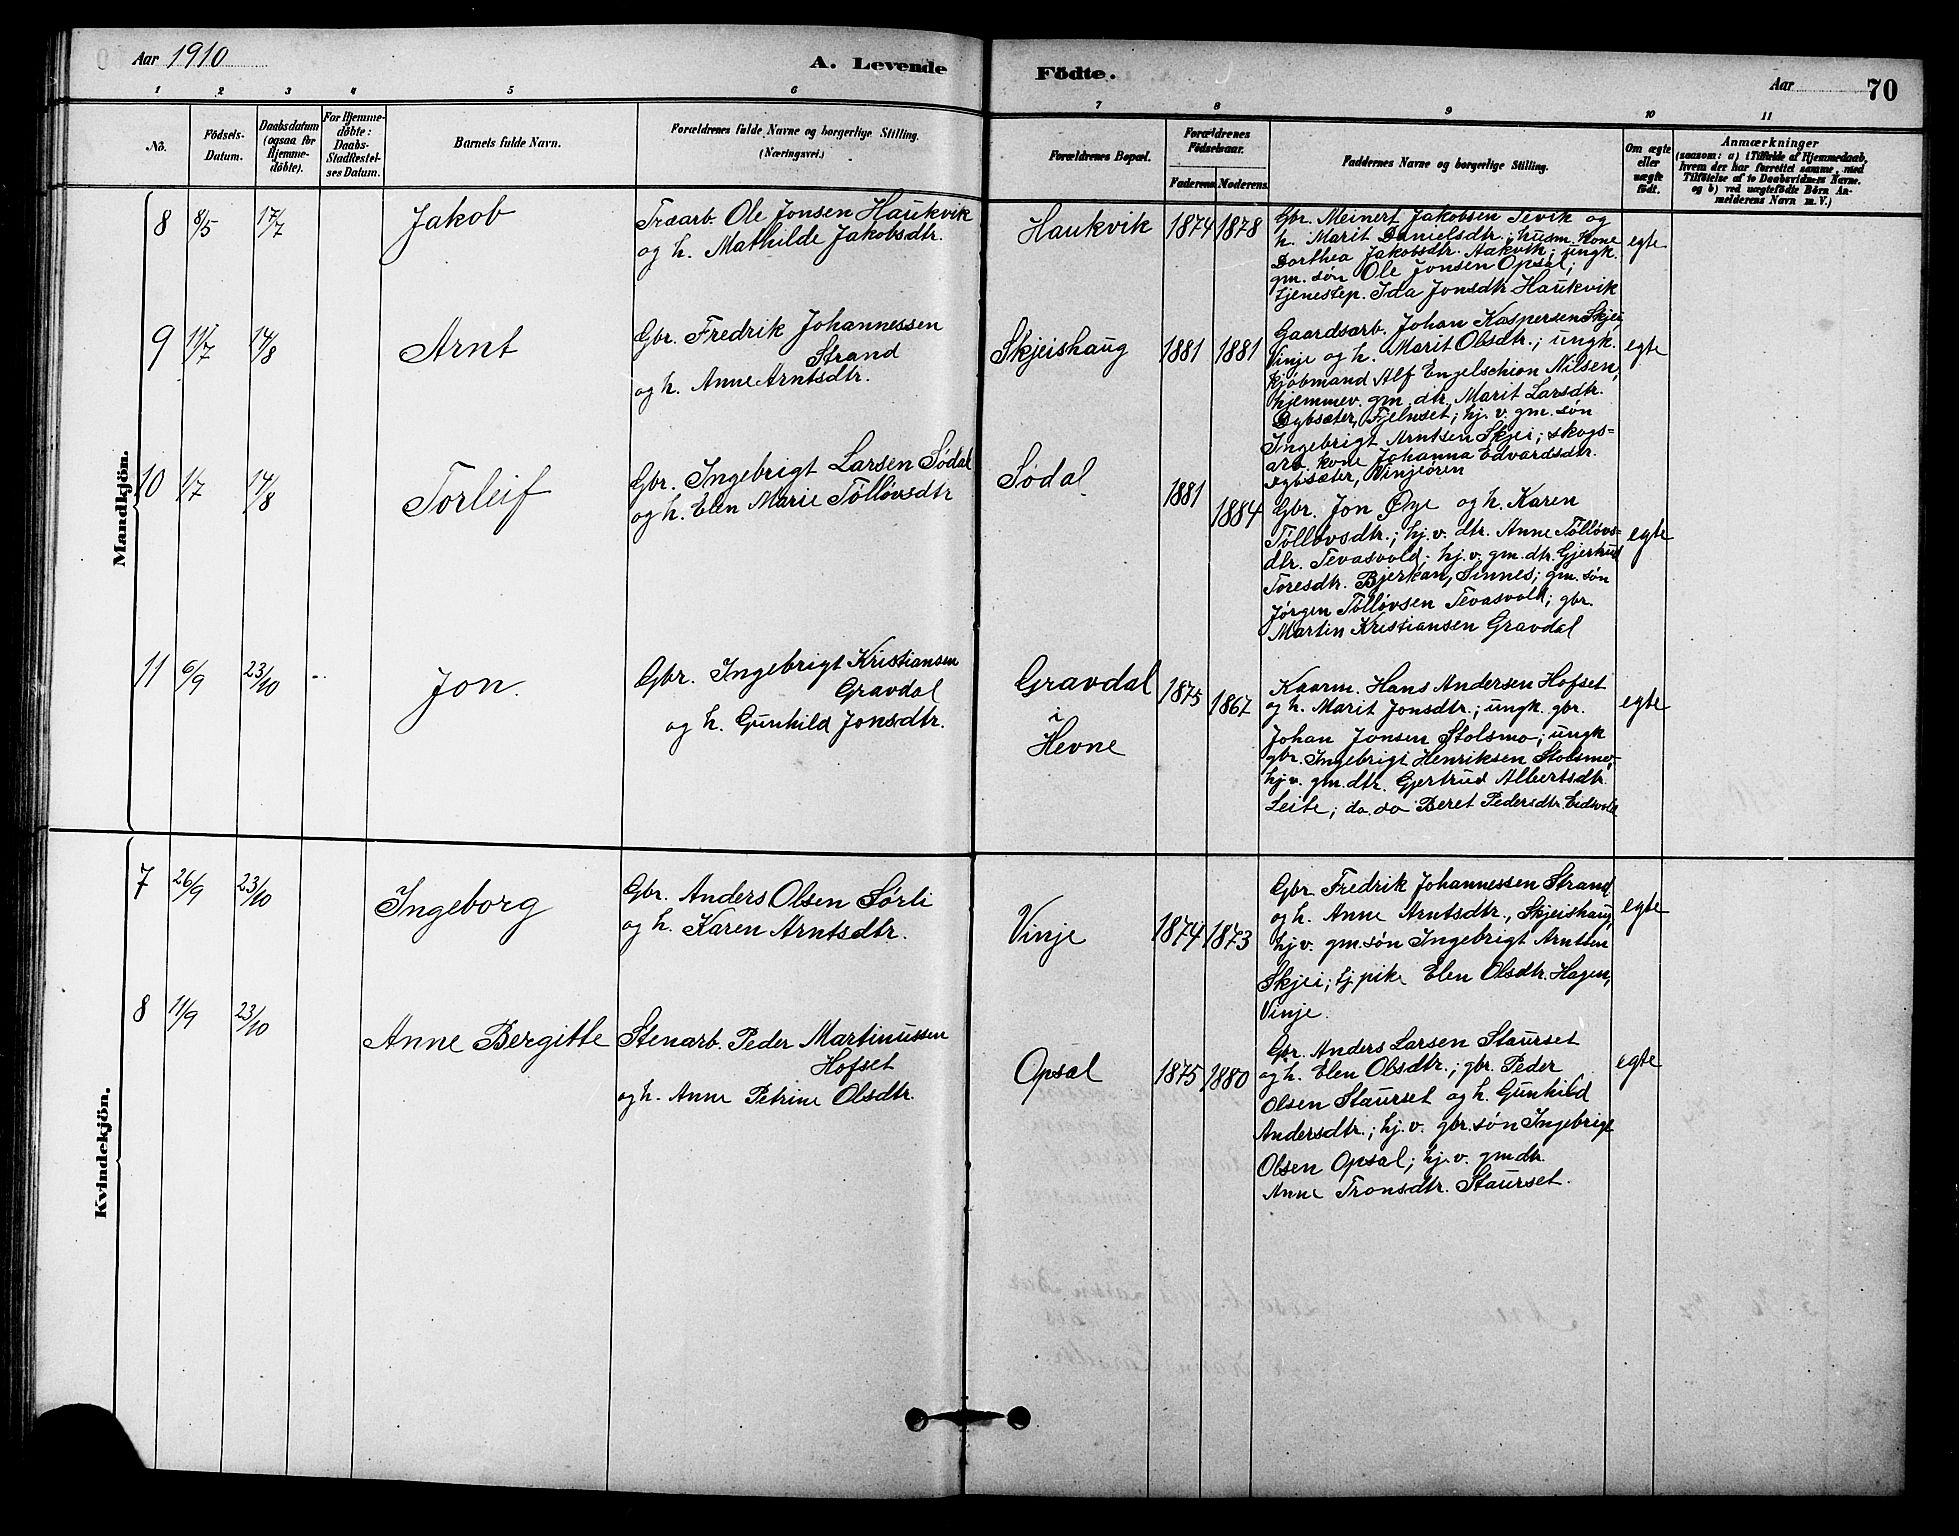 Aar 1910
A. Levende Födte.
Aar
70
1 2 3 4 5 6 7 8 9 10 11
No.
Födsels-
Datum.
Daabsdatum
(ogsaa for
Hjemme-
døbte).
For Hjemme-
døbte:
Daabs-
Stadfæstel-
ses Datum.
Barnets fulde Navn.
Forældrenes fulde Navne og borgerlige Stilling.
(Næringsvei.)
Forældrenes Bopæl.
Forældrenes
Födselsaar.
Faderens. Moderens.
Faddernes Navne og borgerlige Stilling.
Om ægte
eller
uægte
födt.
Anmærkninger
(saasom: a) i Tilfælde af Hjemmedaab,
hvem der har forrettet samme, med
Tilföielse af to Daabsvidners Navne.
og b) ved uægtefödte Børn An-
melderens Navn m. V.)
Mandkjön.
8 8/5 17/7
Jakob
Træarb. Ole Jonsen Haukvik
og h. Mathilde Jakobsdtr.
Haukvik
1874 1878
Gbr. Meinert Jakobsen Tevik og
h. Marit Danielsdtr.; husm. kone
Dorthea Jakobsdtr. Aakvik; ungk.
gm. søn Ole Jonsen Opsal;
tjenestep. Ida Jonsdtr. Haukvik
egte
9 11/7 14/8
Arnt
Gbr. Fredrik Johannessen
Strand
og h. Anne Arntsdtr.
Skjeishaug
1881 1881
Gaardsarb. Johan Kaspersen Skjei
Vinje og h. Marit Olsdtr.; ungk.
kjøbmand Alf Engelschion Nilsen,
hjemmev. gm. dtr. Marit Larsdtr.
Dybsæter, Fjelnset; hj. v. gm. søn
Ingebrigt Arntsen Skjei; skogs-
arb. kone Johanna Edvardsdtr.
Dybsæter, Vinjeøren
egte
10 1/7 14/8
Torleif
Gbr. Ingebrigt Larsen Sødal
og h. Elen Marie Tølløvsdtr
Sødal
1881 1884
Gbr. Jon Øye og h. Karen
Tølløvsdtr.; hj. v. dtr. Anne Tølløvs-
dtr. Tevasvold; hj. v. gm. dtr. Gjertrud
Toresdtr. Bjerkan, Sinnes; gm. søn
Jørgen Tølløvsen Tevasvold; gbr.
Martin Kristiansen Gravdal
egte
11 6/9 23/10
Jon.
Gbr. Ingebrigt Kristiansen
Gravdal
og h. Gunhild Jonsdtr.
Gravdal
i
Hevne
1875 1867
Kaarm. Hans Andersen Hofset
og h. Marit Jonsdtr.; ungk. gbr.
Johan Jonsen Stolsmo; ungk
gbr. Ingebrigt Henriksen Stolsmo;
hj. v. gm. dtr. Gjertrud Albertsdtr.
Leite; do. do Beret Pedersdtr. Eidsvold
egte
Kvindekjön.
7 26/9 23/10
Ingeborg
Gbr. Anders Olsen Sørli
og h. Karen Arntsdtr.
Vinje
1874 1873
Gbr. Fredrik Johannessen Strand
og h. Anne Arntsdtr., Skjeishaug,
hj. v. gm. søn Ingebrigt Arntsen
Skjei; tj. pike Elen Olsdtr. Hagen,
Vinje.
egte
8 11/9 23/10
Anne Bergitte
Stenarb. Peder Martinussen
Hofset
og h. Anne Petrine Olsdtr.
Opsal
1875 1880
Gbr. Anders Larsen Staurset
og h. Elen Olsdtr.; gbr. Peder
Olsen Staurset og h. Gunhild
Andersdtr.; hj. v. gbr. søn Ingebrigt
Olsen Opsal; hj. v. gm. dtr.
Anne Tronsdtr. Staurset.
egte